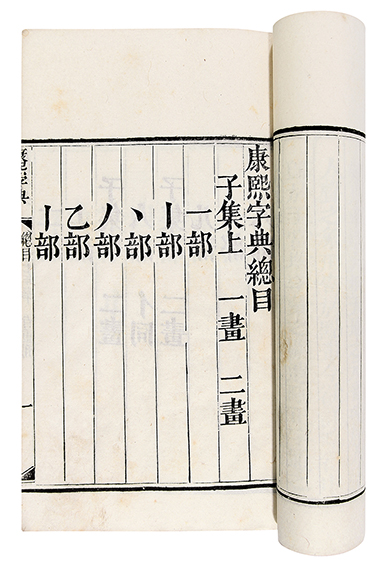 康熙字典總目
子集上 一畫 二畫
一部
丨部
丶部
丿部
乙部
亅部
康熙字典
總目
一